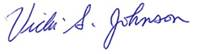 Vicki S. Johnson